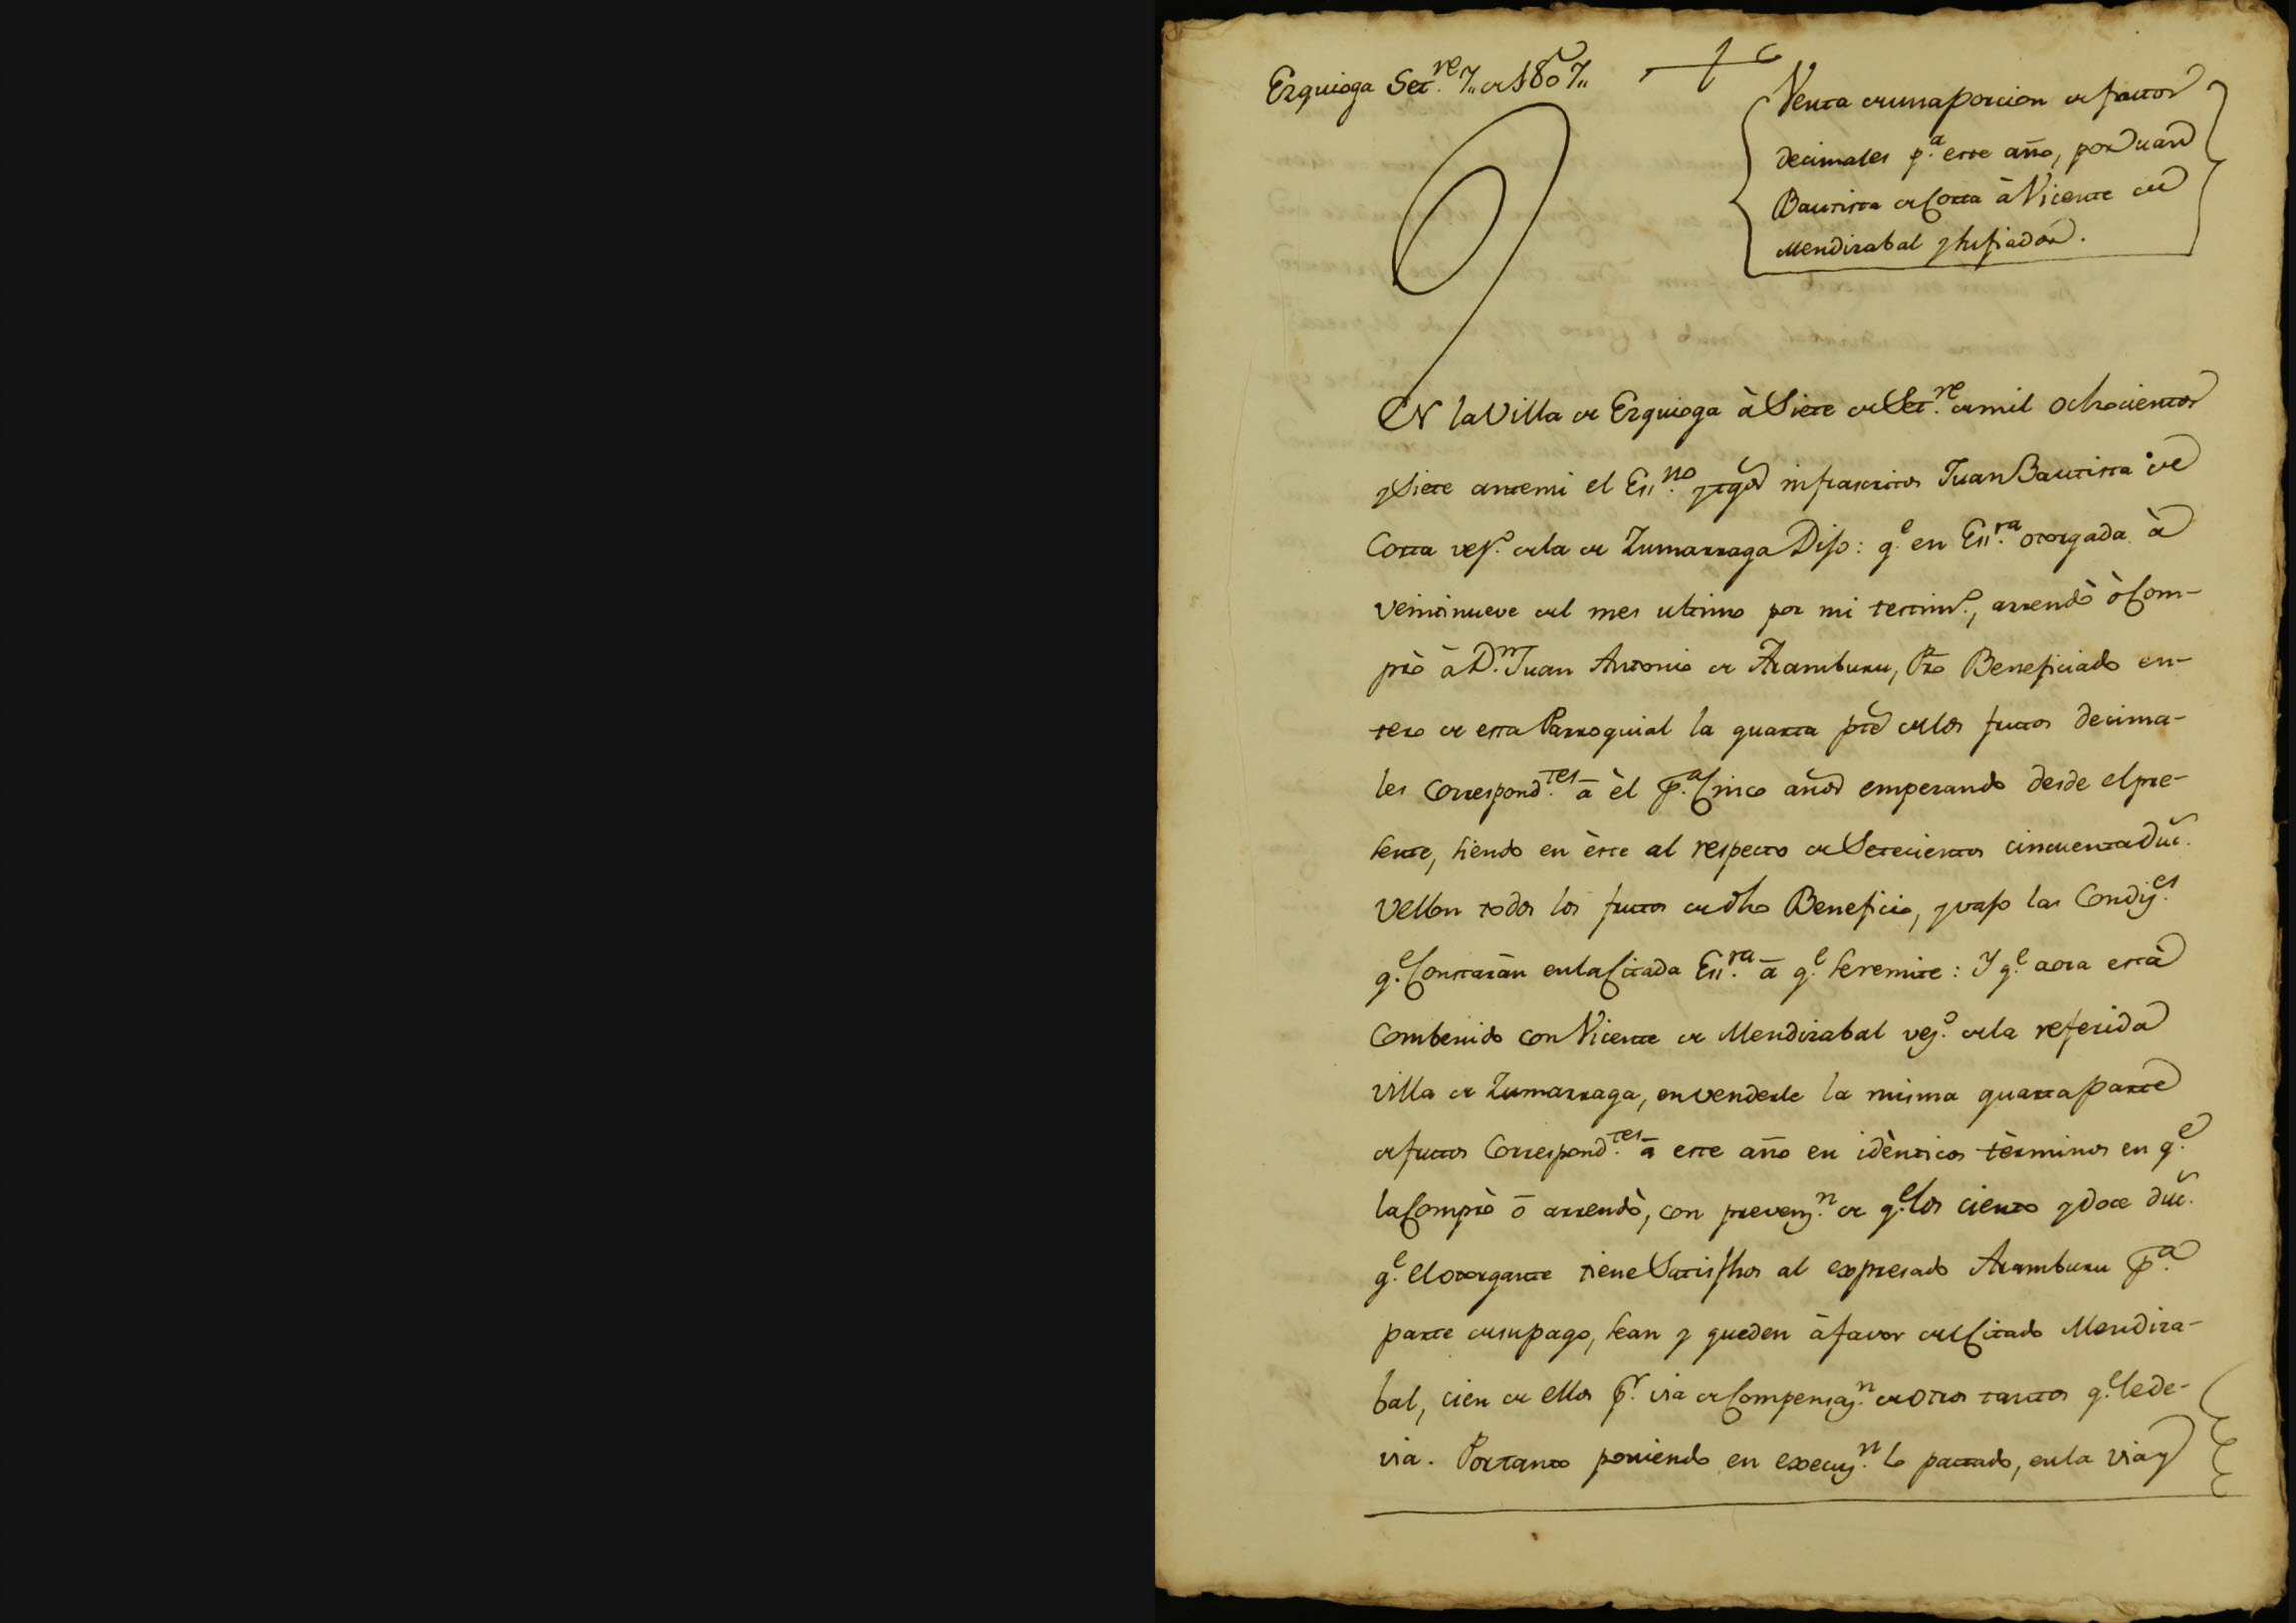 Ezquioga Set.re 7,, de 1807,,
Venta de una porcion de frutos
decimales p.a este año, por Juan
Bautista de Corta à Vicente de
Mendizabal y su fiador.
EN la Villa de Ezquioga à Siete de Set.re de mil ochocientos
y Siete ante mi el Ess.no y tgos infrascritos Juan Bautista de
Corta vez.o de la de Zumarraga Dijo: q.e en Ess.ra otorgada à
veintinueve del mes ultimo por mi testim.o, arrendò ò Com-
prò à D.n Juan Antonio de Aramburu, Pro Beneficiado en-
tero de esta Parroquial la quarta pte de los frutos decima-
les Correspond.tes à èl p.a Cinco años empezando desde el pre-
sente, siendo en èste al respecto de Setecientos cincuenta duc.
Vellon todos los frutos de dho Beneficio, y vajo las Condiz.es
q.e Constaràn en la Citada Ess.ra à q.e se remite: Y q.e aora està
Combenido con Vicente de Mendizabal vez.o de la referida
villa de Zumarraga, en venderle la misma quarta parte
de frutos Correspond.tes à este año en idènticos tèrminos en q.e
la Comprò ò arrendò, con prevenz.n de q.e los ciento y doce duc.
q.e el otorgante tiene Satisfhos al expresado Aramburu p.a
parte de su pago, sean y queden à favor del Citado Mendiza-
bal, cien de ellos p.r via de Compensaz.n de otros tantos q.e le de-
via. Por tanto poniendo en execuz.n lo pactado, en la via y